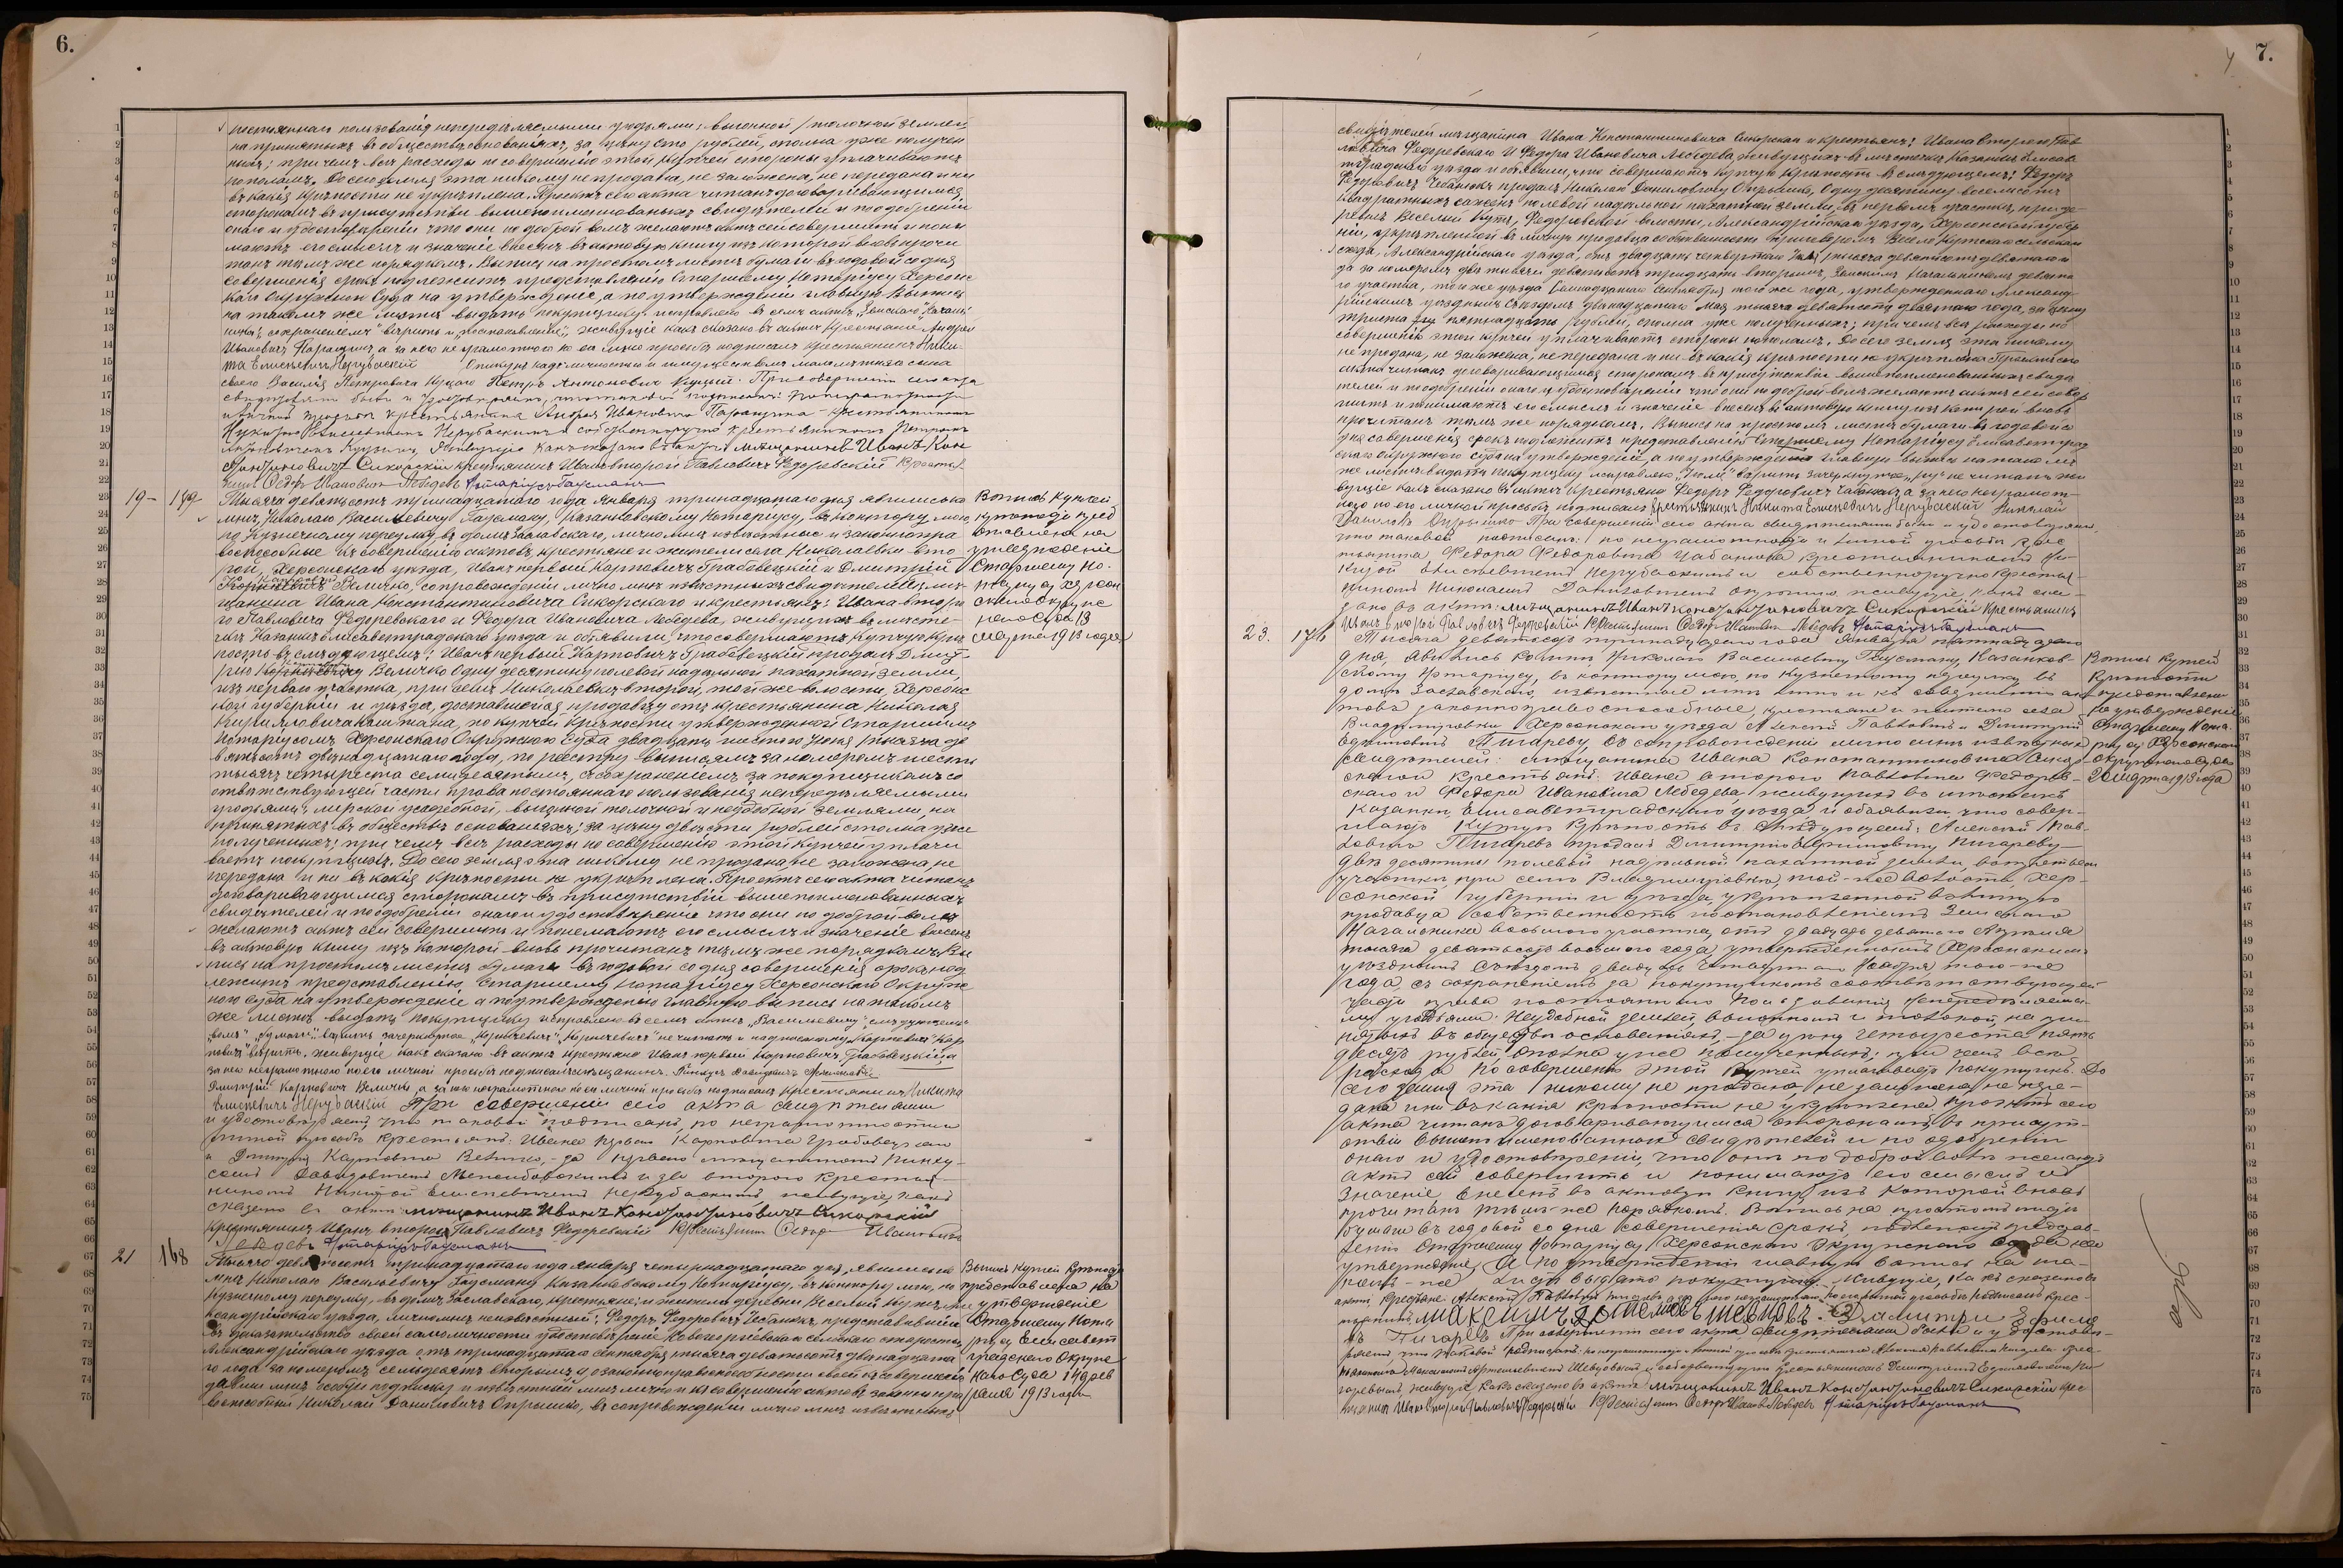 6.
постояннаго пользованія непередѣляемыми угодьями: выгонной, толочной землей
на принятыхъ въ обществѣ основаніяхъ, за цѣну сто рублей, сполна уже получен
ныхъ; при чемъ всѣ расходы по совершенію этой купчей стороны уплачиваютъ
пополамъ. До сего земля эта никому не продана, не заложена, не передана и ни
въ какія крѣпости не укрѣплена. Проектъ сего акта читанъ договаривающимся
сторонамъ въ присутствіи вышепоименованныхъ свидѣтелей и по одобреніи
онаго и удостовѣреніи что они по доброй волѣ желаютъ актъ сей совершить и пони
маютъ его смыслъ и значеніе внесенъ въ актовую книгу изъ которой вновь прочи
танъ тѣмъ же порядкомъ. Выпись на простомъ листѣ бумаги въ годовой со дня
совершенія срокъ подлежитъ представленію Старшему Нотаріусу Херсонс
каго Окружнаго Суда на утвержденіе, а по утвержденіи главную выпись
на такомъ же листѣ выдать покупщику исправлено въ семъ актѣ
живущіе какъ сказано въ актѣ Крестьяне Андрей
Ивановичъ Паращукъ, а за него неграмотнаго по его личной просьбѣ подписался крестьянинъ Ники-
та Елисѣевичъ Нерубаскій Опекунъ надъ личностью и имуществомъ малолѣтняго сына
своего Василія Петровича Куцаго Петръ Антоновичъ Куцый. При совершеніи сего акта
свидѣтелями были и удостовѣряемъ, что таковой подписанъ: по неграмотности
и личной просьбѣ крестьянина Андрея Ивановича Паращука – крестьяниномъ
Никитою Елисѣевичемъ Нерубаскимъ и собственноручно крестьяниномъ Петромъ
Антоновичемъ Куцымъ, живущіе какъ сказано въ актѣ мѣщанинъ Иванъ Кон
стантиновичъ Сикорскій крестьянинъ Иванъ второй Павловичъ Федоревскій Крестья
нинъ Федоръ Ивановичъ Лебедевъ Нотаріусъ Гаусманъ
19 – 149 Тысяча девятьсотъ тринадцатаго года Января тринадцатаго дня явились ко
мнѣ, Николаю Васильевичу Гаусману, Казанковскому Нотаріусу, въ контору мою,
по Кузнечному переулку, въ домѣ Заславскаго, лично мнѣ извѣстные и законопра
воспособные къ совершенію актовъ, крестьяне и жители села Николаевки вто
рой, Херсонскаго уѣзда, Иванъ первый Карповичъ Грабовецкій и Дмитрій
Величко, въ сопровожденіи лично мнѣ извѣстныхъ свидѣтелей: мѣ
щанина Ивана Константиновича Сикорскаго и крестьянъ: Ивана второ
го Павловича Федоревскаго и Федора Ивановича Лебедева, живущихъ въ мѣсте-
чкѣ Казанкѣ Елисаветградскаго уѣзда и объявили, что совершаютъ купчую крѣ
пость въ слѣдующемъ: Иванъ первый Карповичъ Грабовецкій продалъ Дмит-
рію Величко Одну десятину полевой надѣльной пахатной земли,
изъ перваго участка, при селѣ Николаевкѣ второй, той же волости, Херсонс
кой губерніи и уѣзда, доставшейся продавцу отъ крестьянина Николая
Кирилловича по купчей крѣпости утвержденной Старшимъ
Нотаріусомъ Херсонскаго Окружнаго Суда двадцать шестого Іюня тысяча де
вятьсотъ двѣнадцатаго года, по реестру выписямъ за номеромъ шесть
тысячъ четыреста семьдесятымъ, съ сохраненіемъ за покупщикомъ со
отвѣтствующей части права постояннаго пользованія непередѣляемыми
угодьями: мірской усадебной, выгонной толочной и неудобной землями, на
принятыхъ въ обществѣ основаніяхъ; за цѣну двѣсти рублей сполна уже
полученныхъ; при чемъ всѣ расходы по совершенію этой купчей уплачи
ваетъ покупщикъ. До сего земля эта никому не продана, не заложена, не
передана и ни въ какія крѣпости не укрѣплена. Проектъ сего акта читанъ
договаривающимся сторонамъ въ присутствіи вышепоименованныхъ
свидѣтелей и по одобреніи онаго и удостовѣреніи что они по доброй волѣ
желаютъ актъ сей совершить и понимаютъ его смыслъ и значеніе внесенъ
въ актовую книгу изъ которой вновь прочитанъ тѣмъ же порядкомъ. Вы
пись на простомъ листѣ бумаги въ годовой со дня совершенія срокъ под
лежитъ представленію Старшему Нотаріусу Херсонскаго Окруж
наго Суда на утвержденіе а по утвержденіи главную выпись на такомъ
же листѣ выдать покупщику исправлено въ семъ актѣ „Васильевичу“
живущіе какъ сказано въ актѣ крестьяне Иванъ первый Карповичъ Грабовецкій а
за него неграмотнаго по его личной просьбѣ подписался мѣщанинъ Пинкусъ Давидовичъ
Дмитрій Карповичъ Величко, а за него неграмотнаго по его личной просьбѣ подписался крестьянинъ Никита
Елисѣевичъ Нерубаскій При совершеніи сего акта свидѣтелями
и удостовѣряемъ, что таковой подписанъ, по неграмотности и
личной просьбѣ крестьянъ: Ивана перваго Карповича Грабовецкаго
и Дмитрія Карповича Величко, – за перваго мѣщаниномъ Пинку-
сомъ Давидовичемъ и за второго Крестья-
ниномъ Никитой Елисѣевичемъ Нерубаскимъ, живущіе, какъ
сказано въ актѣ мѣщанинъ Иванъ Константиновичъ Сикорскій
крестьянинъ Иванъ второй Павловичъ Федоревскій Крестьянинъ Федоръ Ивановичъ
Лебедевъ Нотаріусъ Гаусманъ
Выпись купчей
крѣпости пред
ставлена на
утвержденіе
Старшему Но-
таріусу Херсон
скаго Окруж
наго Суда 13
марта 1913 года
21 168 Тысяча девятьсотъ тринадцатаго года января четырнадцатаго дня, явились ко
мнѣ Николаю Васильевичу Гаусману Казанковскому Нотаріусу, въ контору мою, по
Кузнечному переулку, въ домѣ Заславскаго, крестьяне, и жители деревни Веселый Кутъ, Але
ксандрійскаго уѣзда, лично мнѣ неизвѣстный: Федоръ Федоровичъ Чебанюкъ, представившій
въ доказательство своей самоличности удостовѣреніе Новогеоргіевскаго сельскаго старосты,
Александрійскаго уѣзда отъ тринадцатаго сентября тысяча девятьсотъ двѣнадцата
го года за номеромъ семьдесятъ вторымъ и о законоправоспособности своей къ совершенію
давшій мнѣ особую подписку и извѣстный мнѣ лично и къ совершенію актовъ законопра
воспособный Николай Даниловичъ Опрышко, въ сопровожденіи лично мнѣ извѣстныхъ
Выпись купчей крѣпости
представлена на
утвержденіе
Старшему Нота
ріусу Елисавет
градскаго Окруж
наго Суда 14 фев
раля 1913 года
7.
свидѣтелей мѣщанина Ивана Константиновича Сикорскаго и крестьянъ: Ивана второго Пав
ловича Федоревскаго и Федора Ивановича Лебедева, живущихъ въ мѣстечкѣ Казанкѣ Елисаве
тградскаго уѣзда и объявили, что совершаютъ купчую крѣпость въ слѣдующемъ: Федоръ
Федоровичъ Чебанюкъ продалъ Николаю Даниловичу Опрышко, Одну десятину восемьсотъ
квадратныхъ саженъ полевой надѣльной пахатной земли, въ первомъ участкѣ, при де-
ревнѣ Веселый Кутъ, Федоровской волости, Александрійскаго уѣзда, Херсонской губер
ніи, укрѣпленной въ личную продавца собственность приговоромъ Весело Кутскаго сельскаго
схода, Александрійскаго уѣзда, отъ двадцать четвертаго Мая тысяча девятьсотъ девятаго го
да за номеромъ двѣ тысячи девятьсотъ тридцать вторымъ, Земскимъ Начальникомъ девята
го участка, того же уѣзда Сентября того же года, утвержденнаго Александ
рійскимъ уѣзднымъ Съѣздомъ двѣнадцатаго Мая тысяча девятьсотъ десятаго года, за цѣну
триста пятнадцать рублей, сполна уже полученныхъ; при чемъ всѣ расходы по
совершенію этой купчей уплачиваютъ стороны пополамъ. До сего земля эта никому
не продана, не заложена, не передана и ни въ какія крѣпости не укрѣплена Проектъ сего
акта читанъ договаривающимся сторонамъ въ присутствіи вышепоименованныхъ свидѣ
телей и по одобреніи онаго и удостовѣреніи что они по доброй волѣ желаютъ актъ сей совер
шить и понимаютъ его смыслъ и значеніе внесенъ въ актовую книгу изъ которой вновь
прочитанъ тѣмъ же порядкомъ. Выпись на простомъ листѣ бумаги въ годовой со
дня совершенія срокъ подлежитъ представленію Старшему Нотаріусу Елисаветград
скаго Окружнаго Суда на утвержденіе, а по утвержденіи главную выпись на такомъ
же листѣ выдать покупщику исправлено
вущіе какъ сказано въ актѣ Крестьяне Федоръ Федоровичъ Чебанюкъ, а за него неграмот-
наго по его личной просьбѣ подписался Крестьянинъ Никита Елисѣевичъ Нерубаскій Николай
Даниловъ Опрышко При совершеніи сего акта свидѣтелями были и удостовѣряемъ,
что таковой подписанъ: по неграмотности и личной просьбѣ крес
тьянина Федора Федоровича Чабанюка крестьяниномъ Ни-
китой Елисѣевичемъ Нерубаскимъ и собственноручно крестья-
ниномъ Николаемъ Даниловичемъ Опрышко, живущіе какъ ска-
зано въ актѣ: мѣщанинъ Иванъ Константиновичъ Сикорскій Крестьянинъ
Иванъ второй Павловичъ Федоревскій Крестьянинъ Федоръ Ивановъ Лебедевъ Нотаріусъ Гаусманъ
23. 176 Тысяча девятьсотъ тринадцатаго года Января пятнадцатаго
дня, явились ко мнѣ, Николаю Васильевичу Гаусману, Казанков-
скому Нотаріусу, въ контору мою, по Кузнечному переулку въ
домѣ Заславскаго, извѣстные мнѣ лично и къ совершенію ак
товъ законоправоспособные, крестьяне и жители села
Владиміровки Херсонскаго уѣзда Алексѣй Павловичъ и Дмитрій
Ефимовичъ Пигаревы, въ сопровожденіи лично мнѣ извѣстныхъ
свидѣтелей: мѣщанина Ивана Константиновича Сикор
скаго и крестьянъ: Ивана второго Павловича Федорев-
скаго и Федора Ивановича Лебедева, живущихъ въ мѣстечкѣ
Казанкѣ, Елисаветградскаго уѣзда и объявили, что совер-
шаютъ купчую крѣпость въ слѣдующемъ: Алексѣй Пав-
ловичъ Пигаревъ продалъ Дмитрію Ефимовичу Пигареву
двѣ десятины полевой надѣльной пахатной земли, въ третьемъ
участкѣ, при селѣ Владиміровкѣ, той-же волости, Хер-
сонской губерніи и уѣзда, укрѣпленной въ личную
продавца собственность постановленіемъ Земскаго
Начальника восьмого участка, отъ двадцать девятаго Августа
тысяча девятьсотъ восьмого года утвержденнымъ Херсонскимъ
уѣзднымъ Съѣздомъ двадцать Ноября, того-же
года, съ сохраненіемъ за покупщикомъ соотвѣтствующей
части права постояннаго пользованія непередѣляемы-
ми угодьями: неудобной землей, выгонной и толокой, на при-
нятыхъ въ обществѣ основаніяхъ, – за цѣну четыреста пять
десятъ рублей, сполна уже полученныхъ; при чемъ всѣ
расходы по совершенію этой купчей уплачиваетъ покупщикъ. До
сего земля эта никому не продана, не заложена, не пере-
дана и ни въ какія крѣпости не укрѣплена. Проектъ сего
акта читанъ договаривающимся сторонамъ, въ присут-
ствіи вышепоименованныхъ свидѣтелей и по одобреніи
онаго и удостовѣреніи, что они по доброй волѣ желаютъ
актъ сей совершить и понимаютъ его смыслъ и
значеніе, внесенъ въ актовую книгу, изъ которой вновь
прочитанъ тѣмъ-же порядкомъ. Выпись на простомъ листѣ
бумаги въ годовой со дня совершенія срокъ, подлежитъ представ-
ленію Старшему Нотаріусу Херсонскаго Окружнаго Суда на
утвержденіе, а по утвержденіи главную выпись на та-
комъ-же листѣ выдать покупщику. Живущіе, какъ сказано въ
актѣ, крестьяне: Алексѣй Павловичъ Пигаревъ а за него неграмотнаго по его личной просьбѣ подписался крес-
тьянинъ Максимъ Артемовъ Шевцовъ. Дмитри Ефимо
въ Пигаревъ При совершеніи сего акта свидѣтелями были и удостовѣ-
ряемъ, что таковой подписанъ: по неграмотности и личной просьбѣ крестьянина Алексѣя Павловича Пигарева – крес-
тьяниномъ Максимомъ Артемьевичемъ Шевцовымъ и собственноручно Крестьяниномъ Дмитріемъ Ефимовичемъ Пи
гаревымъ, живущіе, какъ сказано въ актѣ: мѣщанинъ Иванъ Константиновичъ Сикорскій крес
тьянинъ Иванъ второй Павловичъ Федоревскій Крестьянинъ Федоръ Ивановъ Лебедевъ Нотаріусъ Гаусманъ
Выпись купчей
крѣпости
представлена
на утвержденіе
Старшему Нота-
ріусу Херсонскаго
Окружнаго Суда
20 марта 1913 года